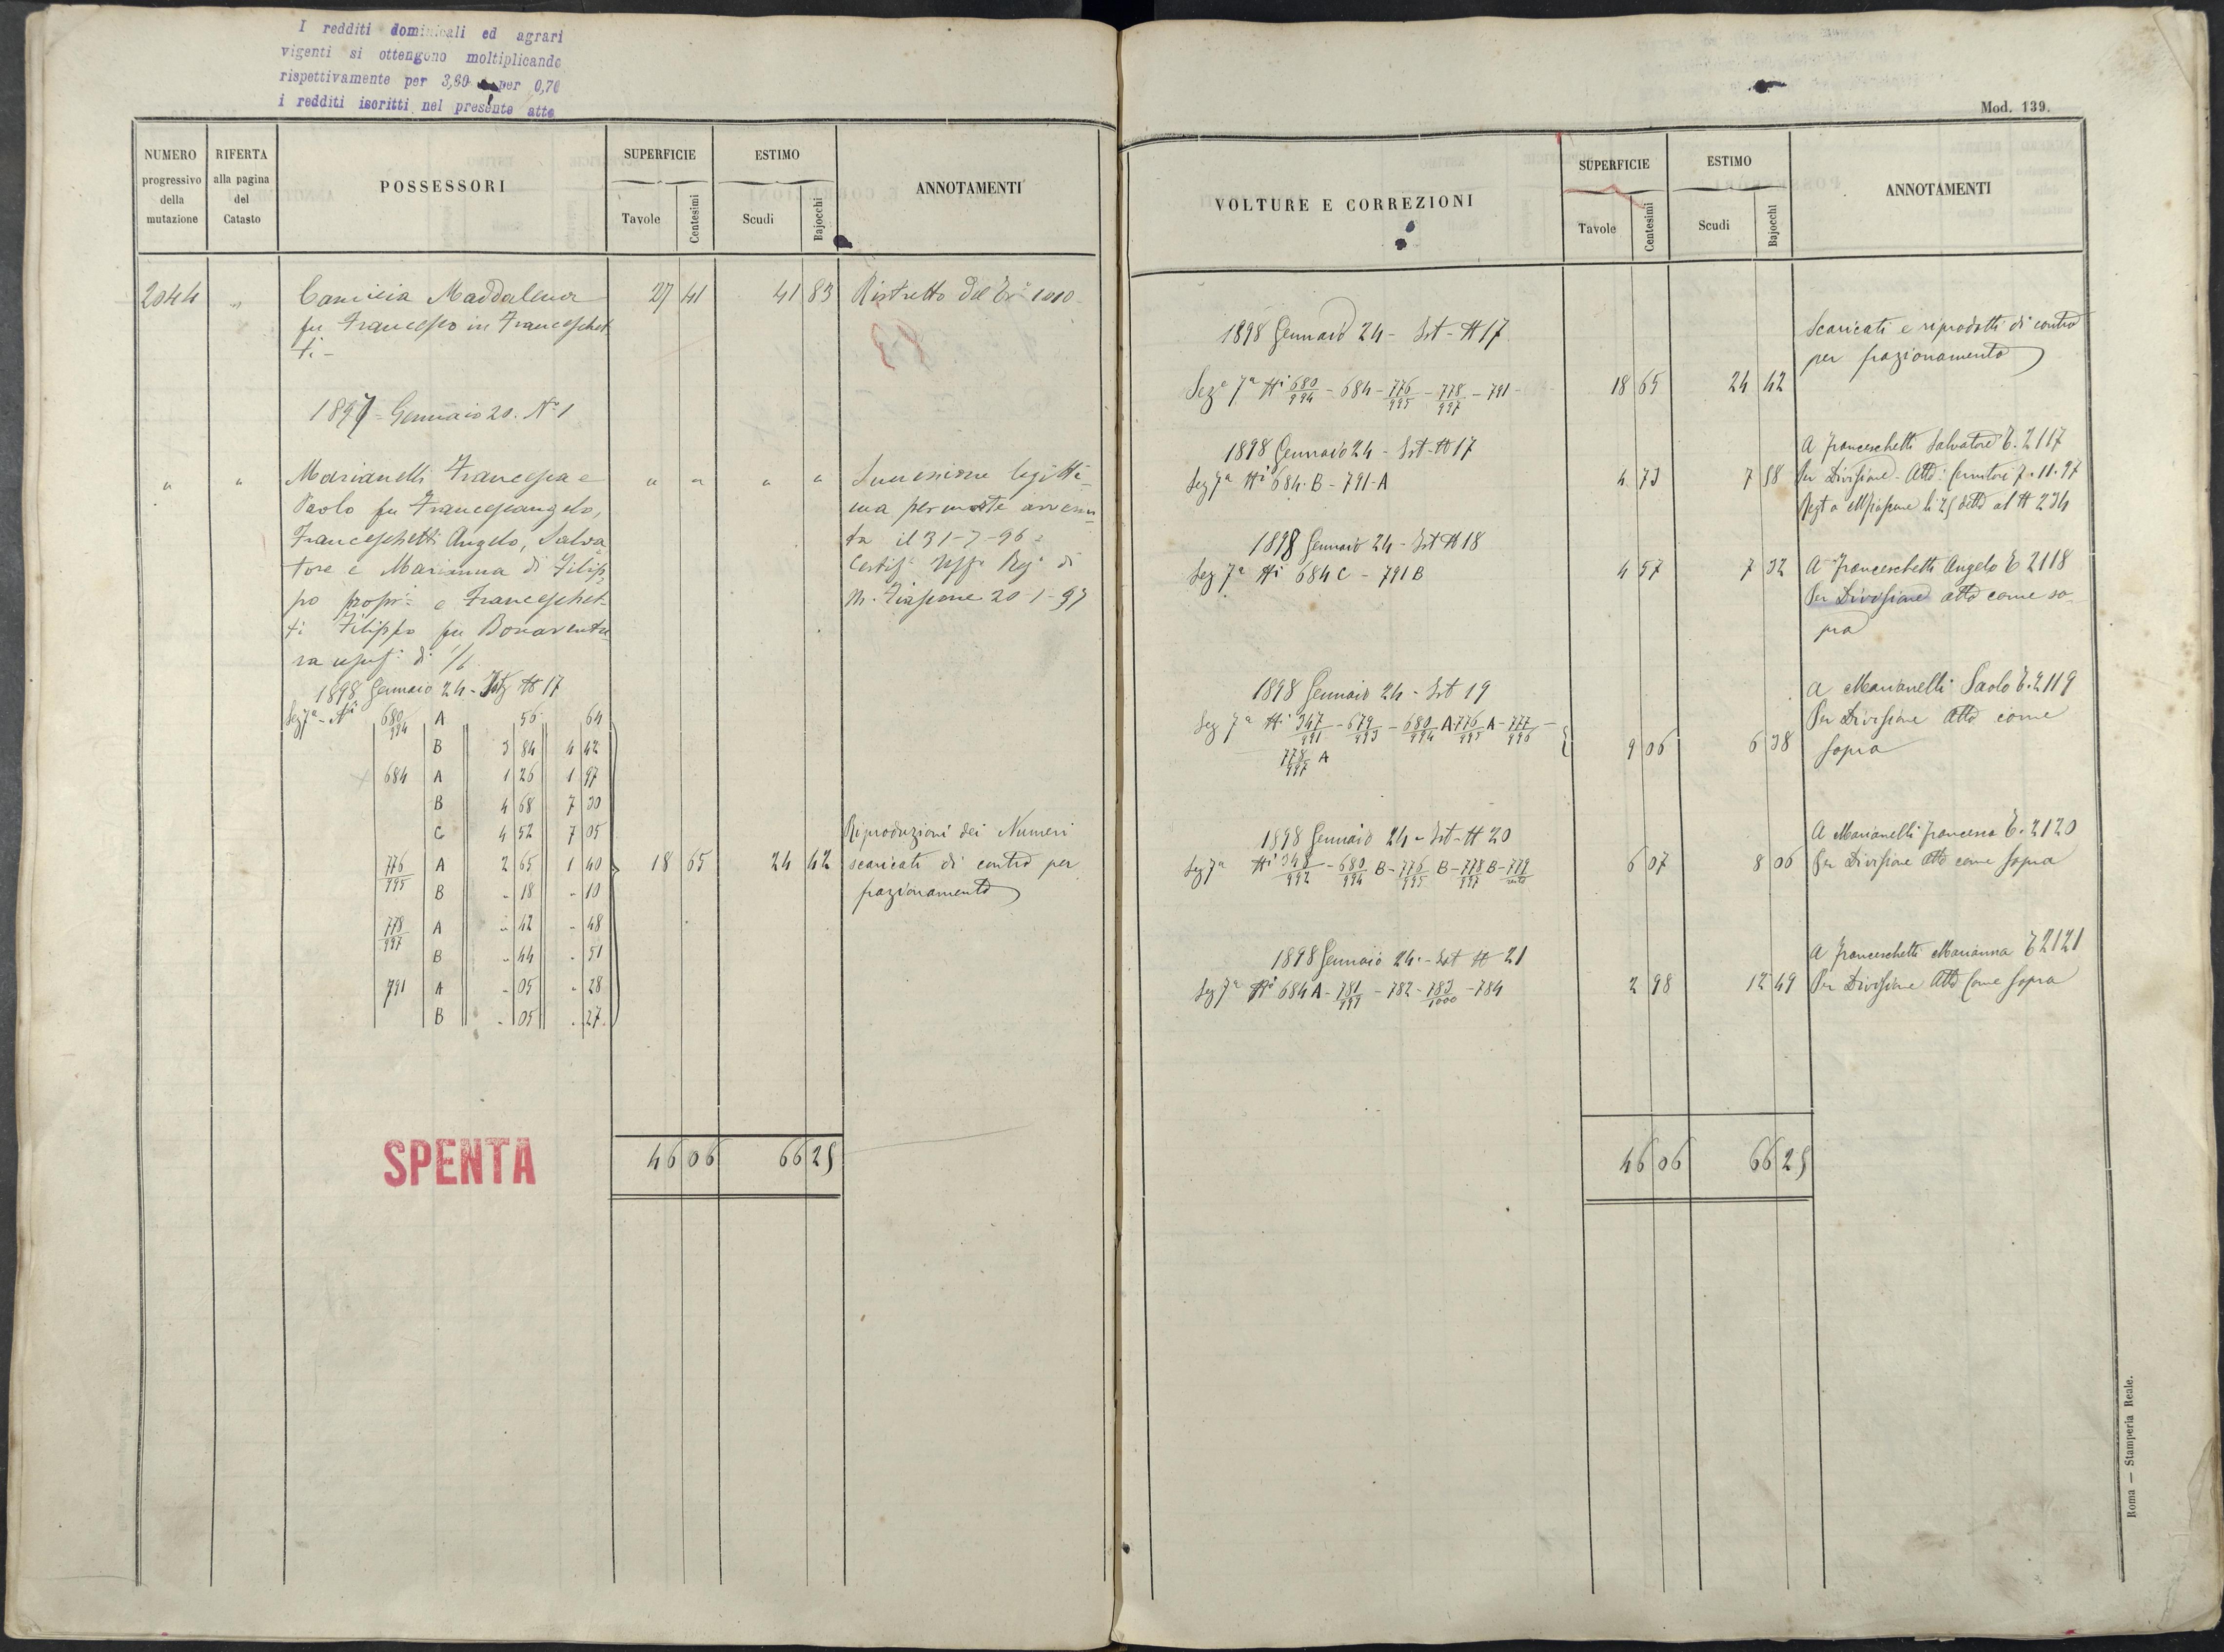 I redditi dominicali ed agrari
vigenti si ottengono moltiplicando
rispettivamente per 3,60 e per 0,70
i redditi iscritti nel presente atto
NUMERO progressivo della mutazione
RIFERTA alla pagina del Catasto
POSSESSORI
SUPERFICIE
Tavole Centesimi
ESTIMO
Scudi Bajocchi
ANNOTAMENTI
2044 " Camicia Maddalena 27 41 41 83 Ristretto dal 1010
fu Francesco in Franceschet
ti -
83
1897 - Gennaio 20. N° 1
" " Marianelli Francesca e " " " " Successione legitti-
Paolo fu Francescangelo, ma per morte avvenu
Franceschetti Angelo, Salva ta il 31-7-96 =
tore e Marianna di Filip Certif° Uff° Reg° di
po propri = e Franceschet- M. Fiascone 20-1-97
ti Filippo fu Bonaventu
ra usuf: di 1/6
1898 Gennaio 24 - Ist N 17
Sez 7ª - Ni 680/994 A 56 64
B 3 84 4 42
684 A 1 26 1 97
B 4 68 7 30
C 4 52 7 05
Riproduzioni dei Numeri
776/995 A 2 65 1 40 18 65 24 42 scaricati di contro per
B - 18 - 10 frazionamento
778/997 A - 42 - 48
B - 44 - 51
791 A - 05 - 28
B - 05 - 27
SPENTA
46 06 66 25
Mod. 139.
VOLTURE E CORREZIONI
SUPERFICIE
Tavole Centesimi
ESTIMO
Scudi Bajocchi
ANNOTAMENTI
1898 Gennaio 24 - Ist - N 17 Scaricati e riprodotti di contro
per frazionamento
Seze 7ª Ni 680/994 - 684 - 776/995 - 778/997 - 791 - 18 65 24 42
1898 Gennaio 24 - Ist - N 17 A Franceschetti Salvatore T. 2117
Sez 7ª Ni 684. B - 791-A 4 73 7 58 Per Divisione - Atto: 7.11.97
Regt a Mfiascone li 25 detto al N 234
1898 Gennaio 24 - Ist N 18
Sez 7ª Ni 684 C - 791 B 4 57 7 32 A Franceschetti Angelo T 2118
Per Divisione atto come so-
pra
1898 Gennaio 24 - Ist 19 A Marianelli Paolo T. 2119
Sez 7ª Ni 347/991 - 679/993 - 680/994 A - 776/995 A - 777/996 - Per Divisione Atto come
778/997 A 9 06 6 38 sopra
1898 Gennaio 24 - Ist - N 20 A Marianelli Francesca T. 2120
Sez 7ª Ni 348/992 - 680/994 B - 776/995 B - 778/997 B - 779 6 07 8 06 Per Divisione Atto come sopra
1898 Gennaio 24 - Ist N 21 A Franceschetti Marianna T 2121
Sez 7ª Ni 684 A - 781/999 - 782 - 783/1000 - 784 2 98 12 49 Per Divisione Atto Come sopra
46 06 66 25
Roma — Stamperia Reale.